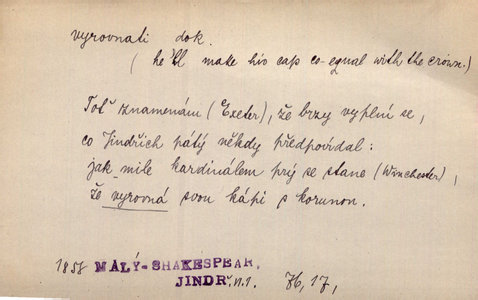 vyrovnati dok.
(he'll make his cap co-equal with the crown.)
Toť znamenám (Exeter), že brzy vyplní se,
co Jindřich pátý někdy předpovídal:
jak mile kardinálem prý se stane (Winchester),
že vyrovná svou kápi s korunou.
1858 MALÝ-SHAKESPEAR,
JINDŘ. VI. 1. 76, 17,